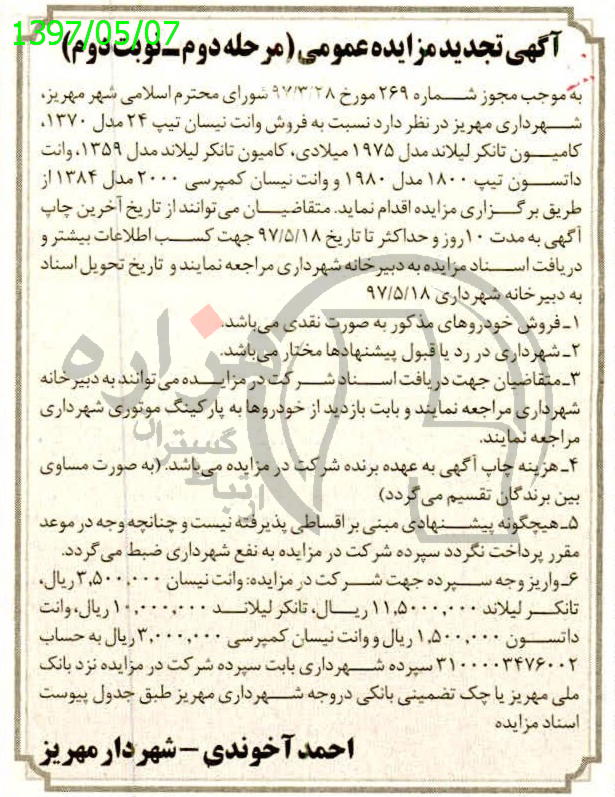 1397/05/07
آگهی تجدید مزایده عمومی (مرحله دوم ـ نوبت دوم)
به موجب مجوز شماره ۲۶۹ مورخ ۹۷/۳/۲۸ شورای محترم اسلامی شهر مهریز،
شهرداری مهریز در نظر دارد نسبت به فروش وانت نیسان تیپ ۲۴ مدل ۱۳۷۰،
کامیون تانکر لیلاند مدل ۱۹۷۵ میلادی، کامیون تانکر لیلاند مدل ۱۳۵۹، وانت
داتسون تیپ ۱۸۰۰ مدل ۱۹۸۰ و وانت نیسان کمپرسی ۲۰۰۰ مدل ۱۳۸۴ از
طریق برگزاری مزایده اقدام نماید. متقاضیان می‌توانند از تاریخ آخرین چاپ
آگهی به مدت ۱۰ روز و حداکثر تا تاریخ ۹۷/۵/۱۸ جهت کسب اطلاعات بیشتر و
دریافت اسناد مزایده به دبیرخانه شهرداری مراجعه نمایند و تاریخ تحویل اسناد
به دبیرخانه شهرداری ۹۷/۵/۱۸
۱ـ فروش خودروهای مذکور به صورت نقدی می‌باشد.
۲ـ شهرداری در رد یا قبول پیشنهادها مختار می‌باشد.
۳ـ متقاضیان جهت دریافت اسناد شرکت در مزایده می‌توانند به دبیرخانه
شهرداری مراجعه نمایند و بابت بازدید از خودروها به پارکینگ موتوری شهرداری
مراجعه نمایند.
۴ـ هزینه چاپ آگهی به عهده برنده شرکت در مزایده می‌باشد. (به صورت مساوی
بین برندگان تقسیم می گردد)
۵ـ هیچگونه پیشنهادی مبنی بر اقساطی پذیرفته نیست و چنانچه وجه در موعد
مقرر پرداخت نگردد سپرده شرکت در مزایده به نفع شهرداری ضبط می‌گردد.
۶ـ واریز وجه سپرده جهت شرکت در مزایده: وانت نیسان ۳,۵۰۰,۰۰۰ ریال،
تانکر لیلاند ۱۱,۵۰۰۰,۰۰۰ ریال، تانکر لیلاند ۱۰,۰۰۰,۰۰۰ ریال، وانت
داتسون ۱,۵۰۰,۰۰۰ ریال و وانت نیسان کمپرسی ۳,۰۰۰,۰۰۰ ریال به حساب
۳۱۰۰۰۰۳۴۷۶۰۰۲ سپرده شهرداری بابت سپرده شرکت در مزایده نزد بانک
ملی مهریز یا چک تضمینی بانکی دروجه شهرداری مهریز طبق جدول پیوست
اسناد مزایده
احمد آخوندی – شهردار مهریز
هزاره
گستران
ارتباط